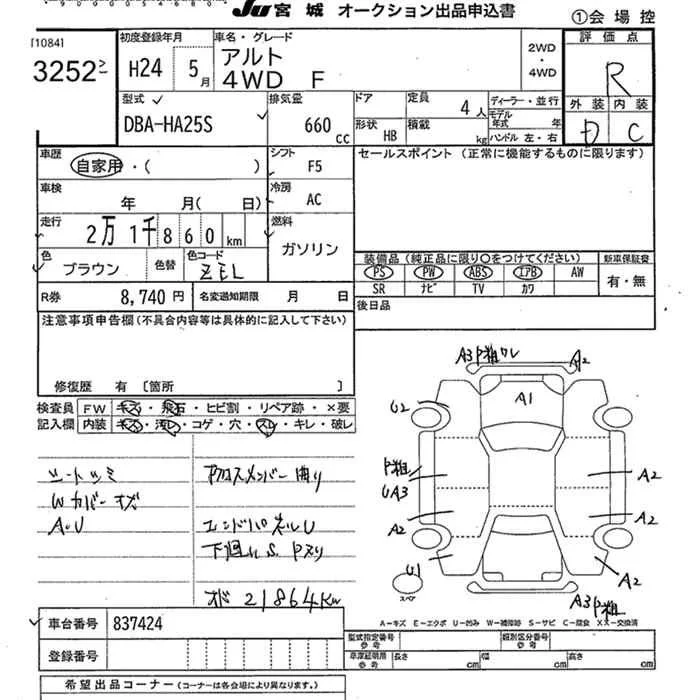 JU 宮城 オークション出品申込書
①会場控
[1084]
3252
初度登録年月
H24 5月
車名・グレード
アルト
4WD F
2WD
・
4WD
評価点
R
外装 内装
D C
型式
DBA-HA25S
排気量
660 cc
ドア
形状 HB
定員 4人
積載 kg
ディーラー・並行
モデル年式 年
ハンドル 左・右
車歴
自家用・( )
シフト F5
セールスポイント (正常に機能するものに限ります)
車検
年 月( 日)
冷房 AC
走行
2万 1千 860 km
燃料
ガソリン
色
ブラウン
色替
色コード
ZEL
装備品(純正品に限り○をつけてください)
新車保証書
PS PW ABS エアB AW
SR ナビ TV カワ
有・無
R券 8,740円
名変通知期限 月 日
後日品
注意事項申告欄(不具合内容等は具体的に記入して下さい)
修復歴 有 〔箇所 〕
検査員
記入欄
FW キズ・飛石・ヒビ割・リペア跡・×要
内装 キズ・汚レ・コゲ・穴・スレ・キレ・破レ
シートシミ
Wカバーキズ
A・U
クロスメンバー曲り
エンドパネルU
下廻りS. Pヌリ
オド 21864Km
A3P粗ワレ
A2
U2
A1
P粗
UA3
A2
A2
A2
U1
A2
A3P粗
スペア
A−キズ E−エクボ U−凹み W−補修跡 S−サビ C−腐食 XX−交換済
車台番号 837424
登録番号
型式指定番号
参考
類別区分番号
参考
車庫証明用
参考
長さ cm
幅 cm
高さ cm
希望出品コーナー(シールは各会場により異なります。)